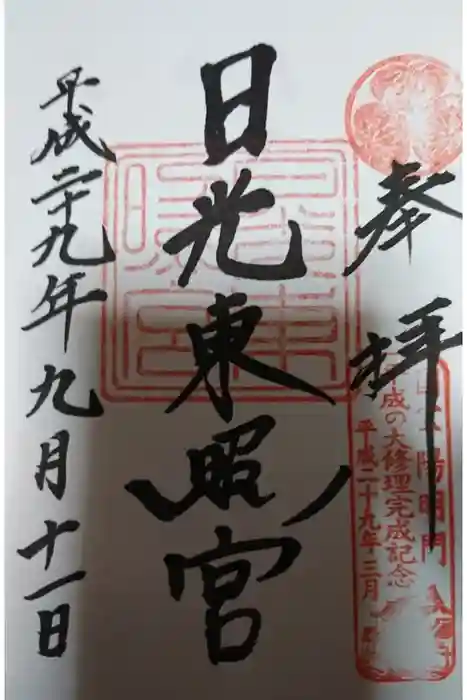 奉拝
国宝陽明門
平成の大修理完成記念
平成二十九年三月
日光東照宮
平成二十九年九月十一日